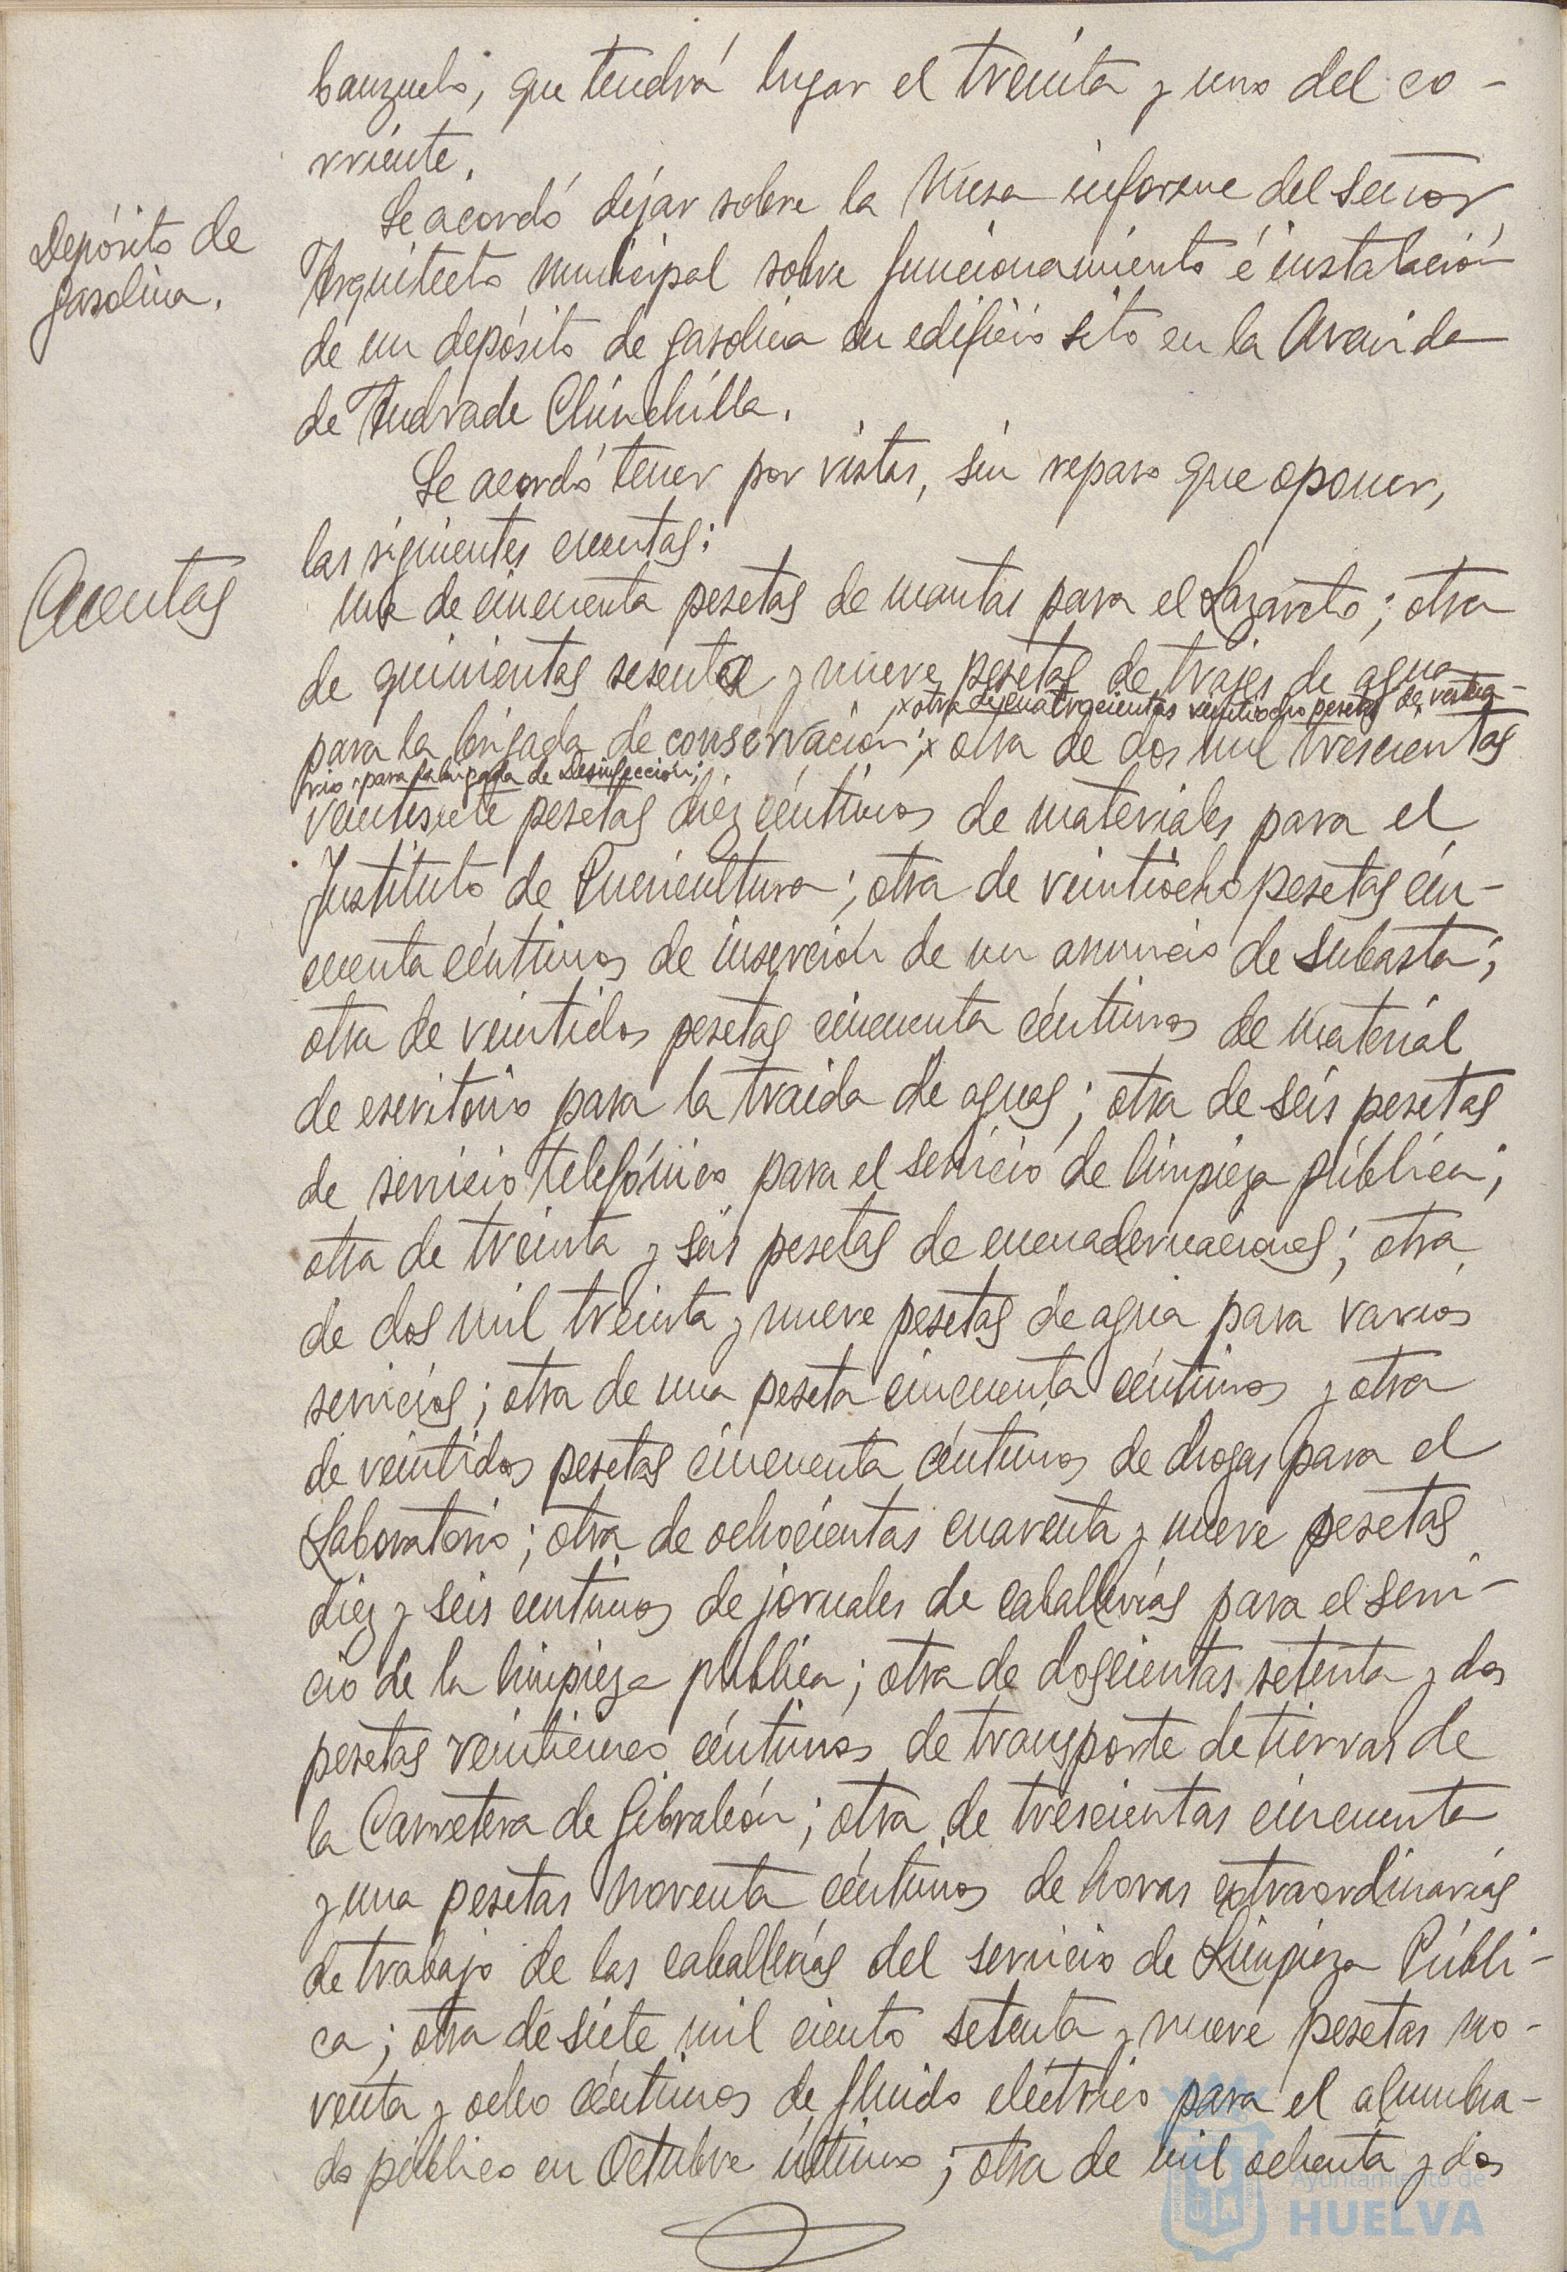 banzuelo, que tendrá lugar el treinta y uno del co-
rriente.
Depósito de
gasolina.
Se acordó dejar sobre la Mesa informe del Señor
Arquitecto Municipal sobre funcionamiento é instalación
de un depósito de gasolina en edificio sito en la Avenida
de Andrade Chinchilla.
Se acordó tener por vistas, sin reparo que oponer,
las siguientes cuentas:
Cuentas
una de cincuenta pesetas de mantas para el Lazareto; otra
de quinientas sesenta y nueve pesetas de trajes de agua
x otra de cuatrocientas veintiocho pesetas de vestua-
para la brigada de conservación; x otra de dos mil trescientas
rio para la brigada de Desinfección;
veintisiete pesetas diez céntimos de materiales para el
Instituto de Puericultura; otra de veintiocho pesetas cin-
cuenta céntimos de inserción de un anuncio de subasta;
otra de veintidos pesetas cincuenta céntimos de material
de escritorio para la traida de aguas; otra de seis pesetas
de servicio telefónico para el servicio de limpieza pública;
otra de treinta y seis pesetas de encuadernaciones; otra
de dos mil treinta y nueve pesetas de agua para varios
servicios; otra de una peseta cincuenta céntimos y otra
de veintidos pesetas cincuenta céntimos de drogas para el
Laboratorio; otra de ochocientas cuarenta y nueve pesetas
diez y seis céntimos de jornales de caballerías para el servi-
cio de la limpieza pública; otra de doscientas setenta y dos
pesetas veinticinco céntimos de transporte de tierras de
la Carretera de Gibraleón; otra de trescientas cincuenta
y una pesetas noventa céntimos de horas extraordinarias
de trabajo de las caballerías del servicio de Limpieza Públi-
ca; otra de siete mil ciento setenta y nueve pesetas no-
venta y ocho céntimos de fluido eléctrico para el alumbra-
do público en Octubre último; otra de mil ochenta y dos
Ayuntamiento de
HUELVA